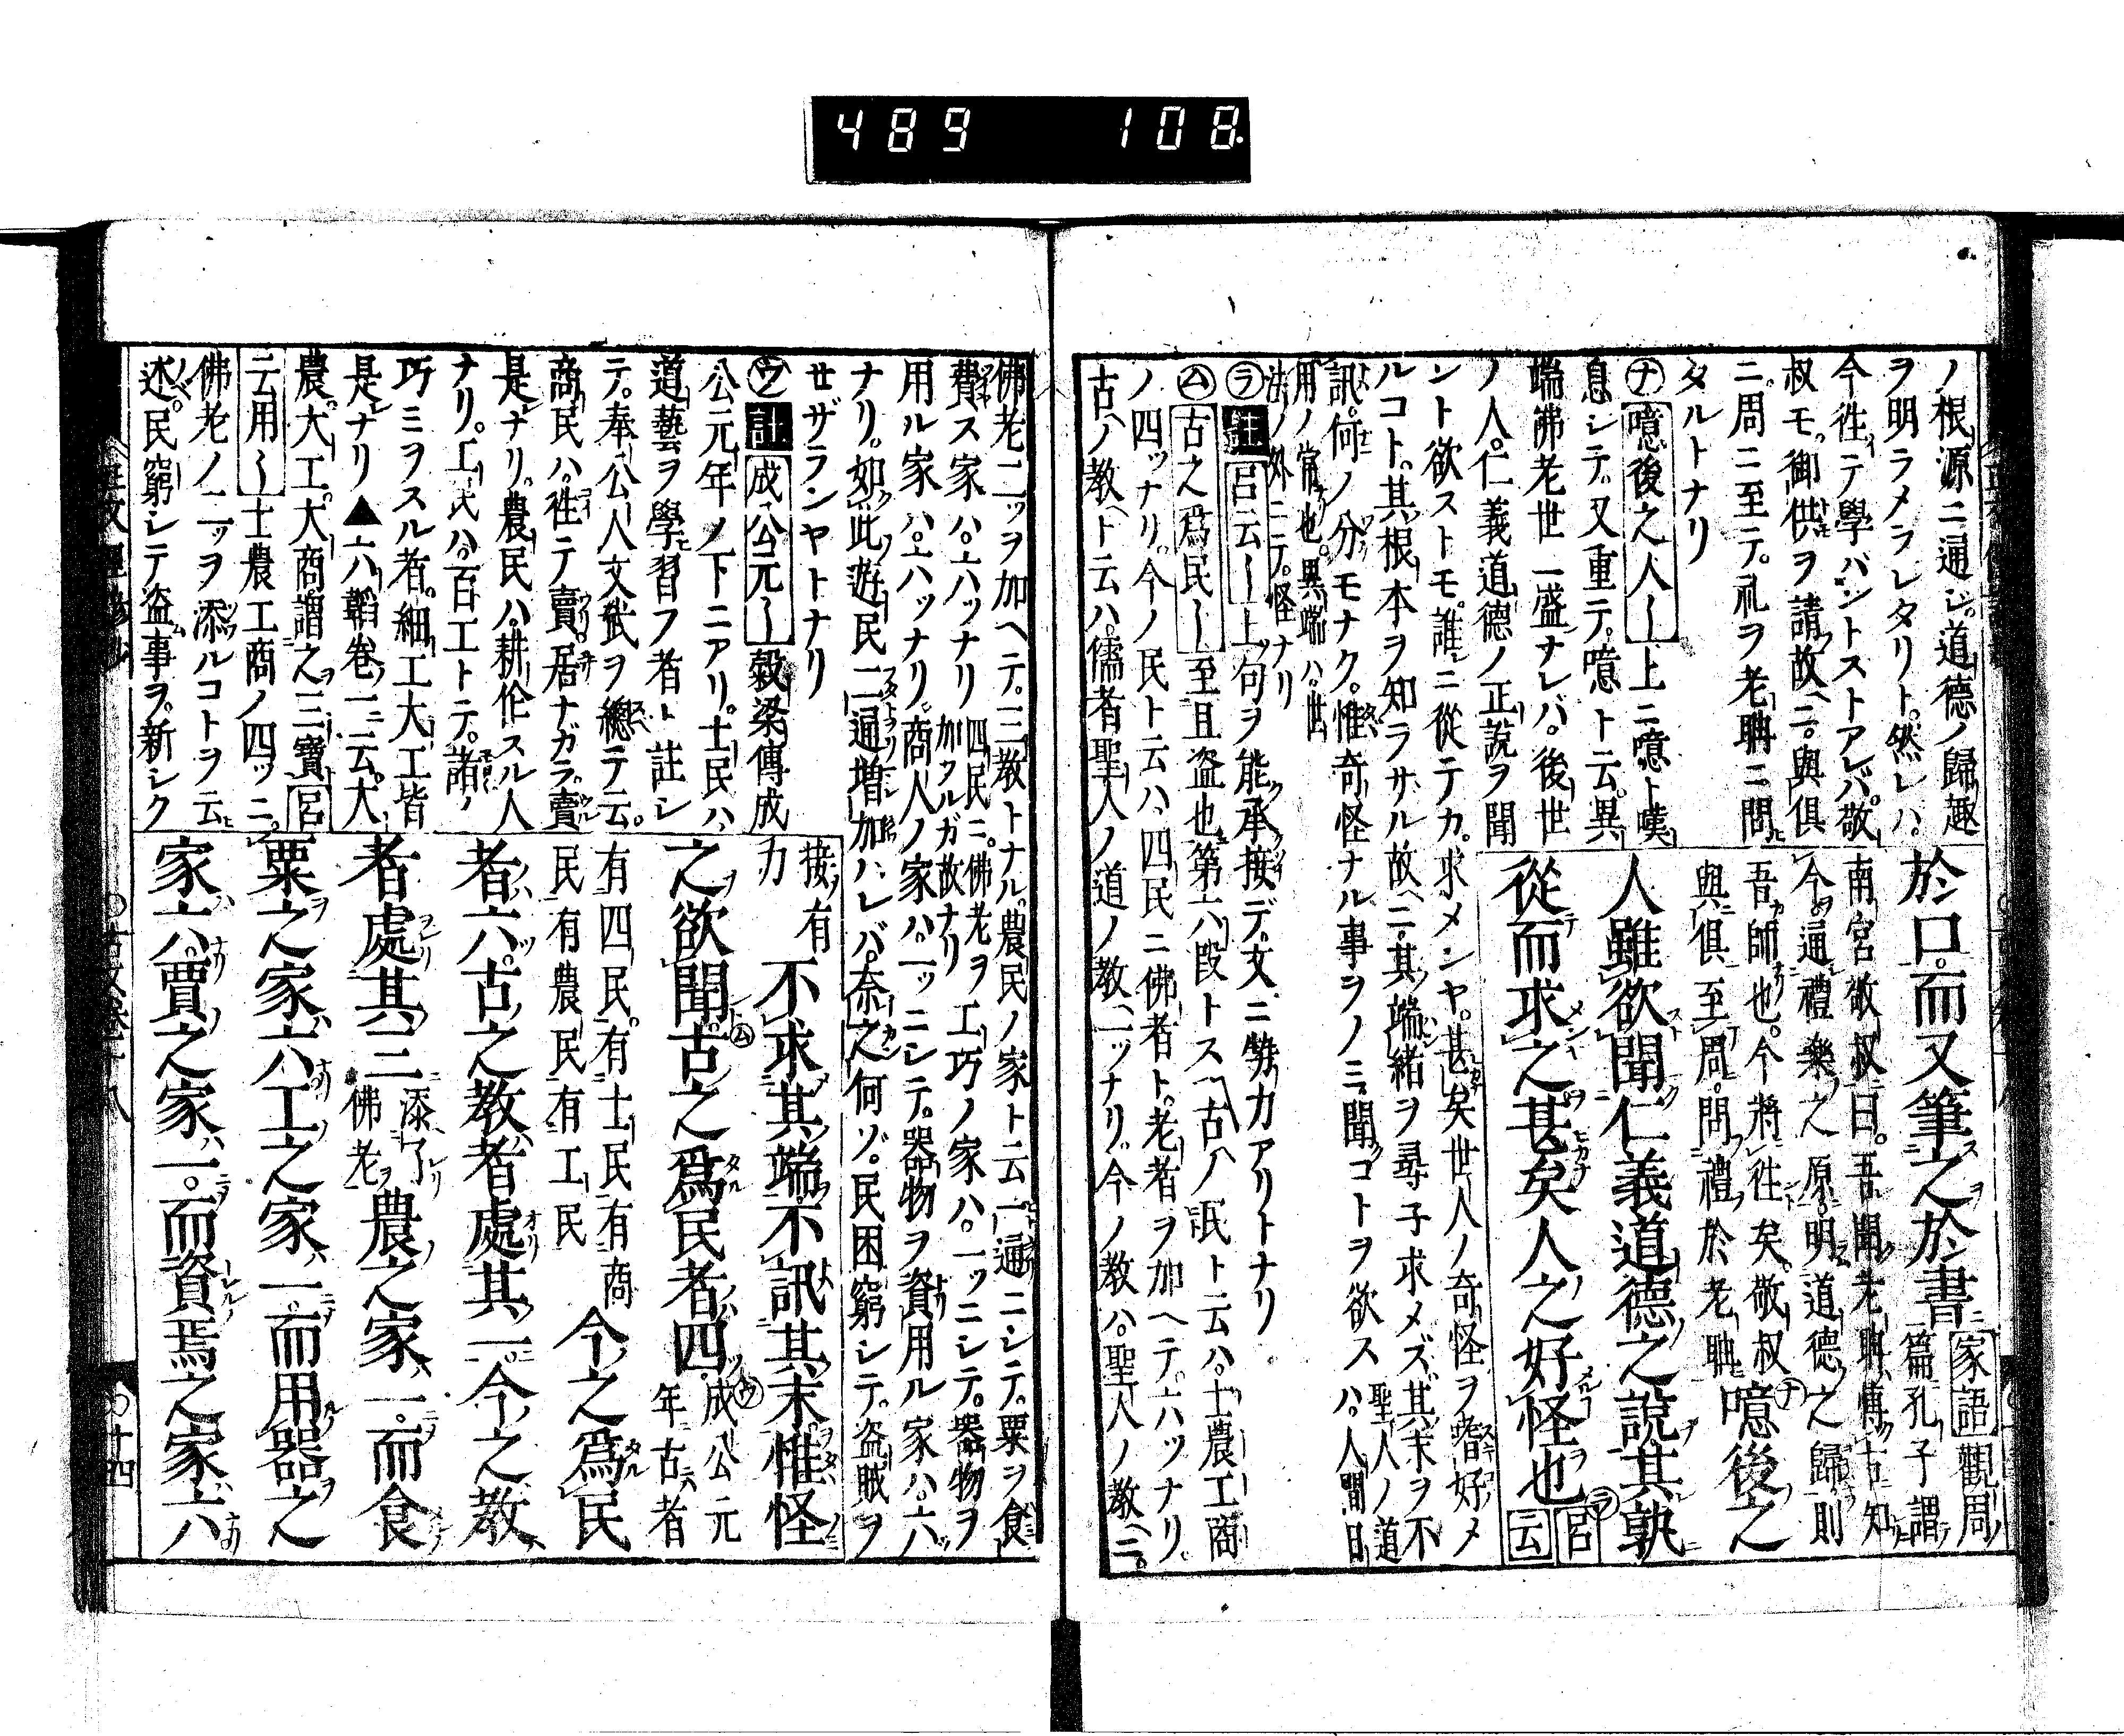 489 108.
ノ根源ニ通ジ。道德ノ歸趣
ヲ明ラメラレタリト。然レハ。
今往テ學バントストアレバ。敬
叔モ。御供ヲ請故ニ。與俱
ニ。周ニ至テ。礼ヲ老聃ニ問
タルトナリ
ナ 噫後之人〡上ニ噫ト嘆
息シテ。又重テ。噫ト云。異
端佛老世一盛ナレバ。後世
ノ人。仁義道德ノ正說ヲ聞
ント欲ストモ。誰ニ從テカ。求メンヤ。甚矣世人ノ奇怪ヲ嗜好メ
ルコト。其根本ヲ知ラサル故ニ。其端緒ヲ尋子求メズ。其末ヲ不
訊。何ノ分モナク。惟奇怪ナル事ヲノミ。聞コトヲ欲スハ。人間日
用ノ常也。異端ハ。世
法ノ外ニテ。怪ナリ
聖人ノ道
ラ 註 呂云〡上句ヲ能承接デ。文ニ勢力アリトナリ
ム 古之爲民〡至且盗也第六段トス 古ノ民ト云ハ。士農工商
ノ四ッナリ。今ノ民ト云ハ。四民ニ佛者ト。老者ヲ加ヘテ。六ツナリ。
古ノ教ト云ハ。儒者聖人ノ道ノ教一ッナリ。今ノ教ハ。聖人ノ教ニ。
於口。而又筆之於書 家語觀周
篇孔子謂
南宮敬叔曰。吾聞老聃博古知
今。通禮樂之原。明道德之歸則
吾師也。今將往矣。敬叔
與俱至周。問禮於老聃
噫後之
人雖欲聞仁義道德之說其孰
從而求之甚矣人之好怪也 呂云
佛老二ッヲ加ヘテ。三教トナル。農民ノ家ト云一通ニシテ。粟ヲ食
費ス家ハ。六ッナリ 四民ニ。佛老ヲ
加フルガ故ナリ 工巧ノ家ハ。一ッニシテ。器物ヲ
用ル家ハ。六ッナリ。商人ノ家ハ。一ッニシテ。器物ヲ資用ル家ハ。六ッ
ナリ。如此遊民二通増加ハレバ。奈之何ゾ。民困窮シテ。盗賊ヲ
セザランヤトナリ
ウ 註 成公元〡穀梁傳成
公元年ノ下ニアリ。士民ハ。
道藝ヲ學習フ者ト註シ
テ。奉公人文武ヲ總テ云。
商民ハ。往テ賣。居ナガラ賣
是ナリ。農民ハ。耕作スル人
ナリ。工民ハ。百工トテ。諸ノ
巧ミヲスル者。細工大工皆
是ナリ▲六韜卷一ニ云。大
農。大工。大商。謂之三寶 呂
云用〡士農工商ノ四ッニ。
佛老ノ二ッヲ添ルコトヲ云
述。民窮シテ盗事ヲ。新シク
接有
力
不求其端。不訊其末。惟怪
之欲聞。古之爲民者四。成公元
年古者
有四民。有士民有商
民有農民有工民 今之爲民
者六。古之教者處其一。今之教
者處其三 添了
佛老 農之家一。而食
粟之家六。工之家一。而用器之
家六。賈之家一。而資焉之家六
十四